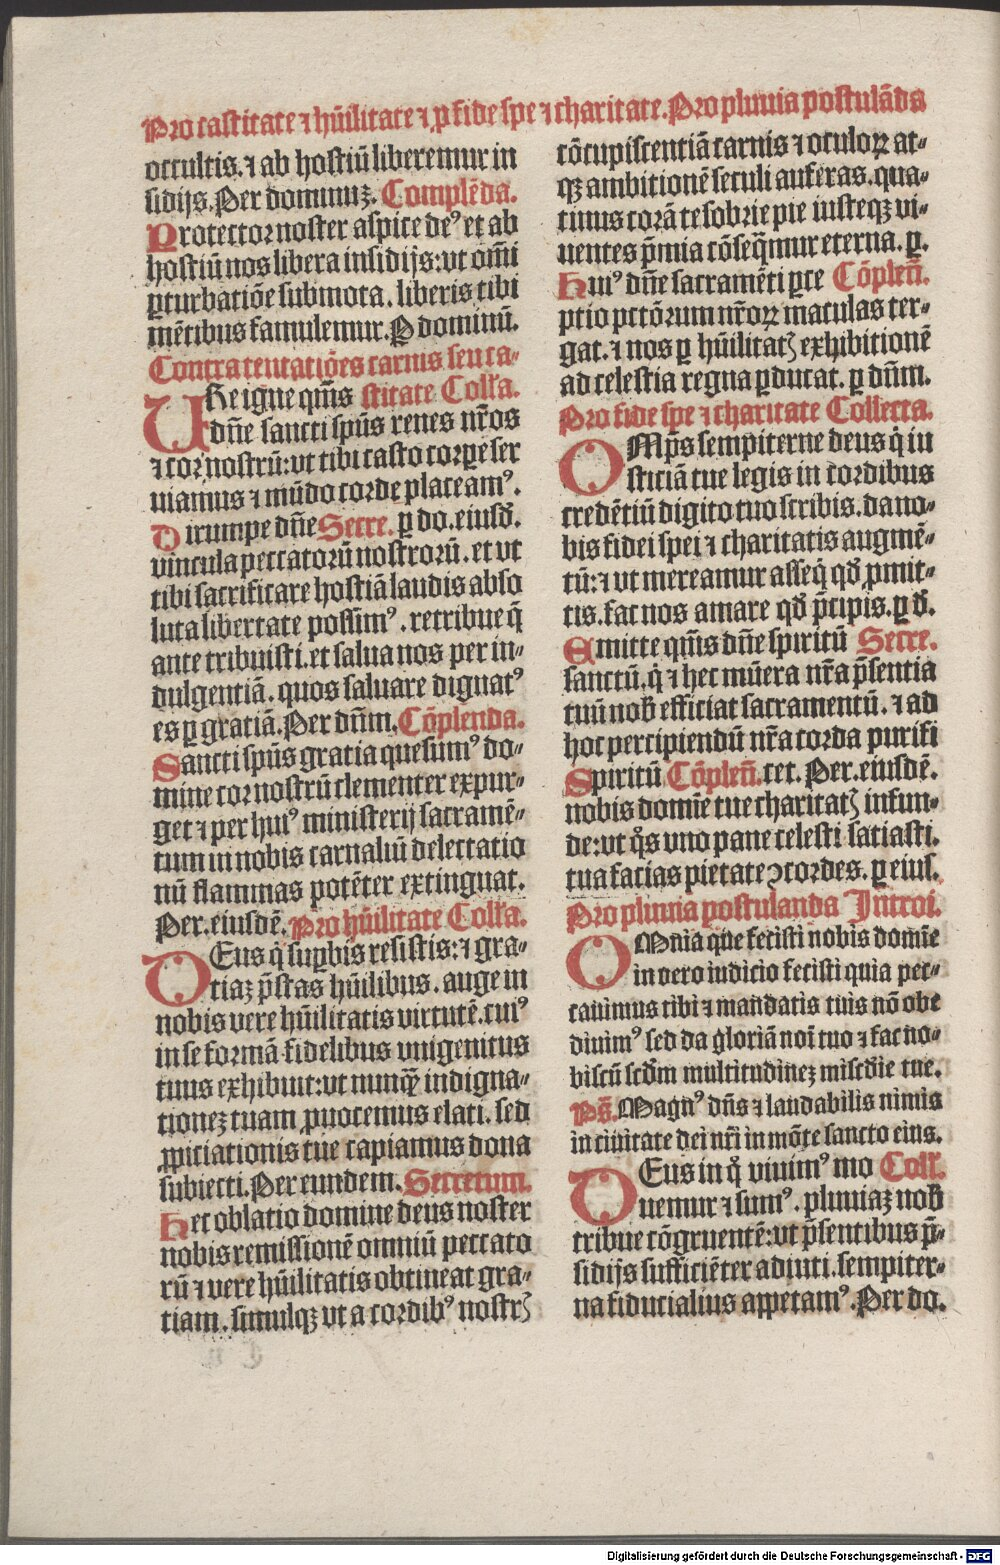 Pro castitate ⁊ hũilitate ⁊ ꝓ fide spe ⁊ charitate. Pro pluuia postulãda
occultis. ⁊ ab hostiũ liberemur in
sidijs. Per dominuꝫ. Complẽda.
Protector noster aspice deꝰ et ab
hostiũ nos libera insidijs: vt om̃i
ꝑturbatiõe submota. liberis tibi
mẽtibus famulemur. Ꝑ dominũ.
Contra tentatiões carnis seu ca-
URe igne qm̃s stitate Coll'a.
dñe sancti spũs renes nr̃os
⁊ cor nostrũ: vt tibi casto corꝑe ser
uiamus ⁊ mũdo corde placeamꝰ.
Dirumpe dñe Secre. ꝑ do. eiusd̃.
vincula peccatorũ nostrorũ. et vt
tibi sacrificare hostiã laudis abso
luta libertate possimꝰ. retribue q̃
ante tribuisti. et salua nos per in-
dulgentiã. quos saluare dignatꝰ
es ꝑ gratiã. Per dñm. Cõplenda.
Sancti spũs gratia quesumꝰ do-
mine cor nostrũ clementer expur-
get ⁊ per huiꝰ ministerij sacramẽ-
tum in nobis carnaliũ delectatio
nũ flammas potẽter extinguat.
Per. eiusdẽ. Pro hũilitate Coll'a.
DEus q̇ suꝑbis resistis: ⁊ gra-
tiaꝫ p̃stas hũilibus. auge in
nobis vere hũilitatis virtutẽ. cuiꝰ
in se formã fidelibus vnigenitus
tuus exhibuit: vt nunq̃ indigna-
tionez tuam ꝓuocemus elati. sed
ꝓpiciationis tue capiamus dona
subiecti. Per eundem. Secretum.
Hec oblatio domine deus noster
nobis remissionẽ omniũ peccato
rũ ⁊ vere hũilitatis obtineat gra-
tiam. simulqꝫ vt a cordibꝰ nostrꝭ
cõcupiscentiã carnis ⁊ oculoꝝ at-
qꝫ ambitionẽ seculi auferas. qua-
tinus corã te sobrie pie iusteqꝫ vi-
uentes p̃mia cõseq̃mur eterna. ꝑ.
Huiꝰ dñe sacramẽti ꝑce Cõpleñ.
ptio pctõrum nr̃oꝝ maculas ter-
gat. ⁊ nos ꝑ hũilitatꝭ exhibitionẽ
ad celestia regna ꝑducat. ꝑ dñm.
Pro fide spe ⁊ charitate Collecta.
OMp̃s sempiterne deus q̇ iu
sticiã tue legis in cordibus
credẽtiũ digito tuo scribis. da no-
bis fidei spei ⁊ charitatis augmẽ-
tũ: ⁊ vt mereamur asseq̇ qd̃ ꝓmit-
tis. fac nos amare qd̃ p̃cipis. ꝑ d̃.
Emitte qm̃s dñe spiritũ Secre.
sanctũ. q̇ ⁊ hec mũera nr̃a p̃sentia
tuũ nob̃ efficiat sacramentũ. ⁊ ad
hoc percipiendũ nr̃a corda purifi
Spiritũ Cõpleñ. cet. Per. eiusdẽ.
nobis domĩe tue charitatꝭ infun-
de: vt q̊s vno pane celesti satiasti.
tua facias pietate ↄcordes. ꝑ eius.
Pro pluuia postulanda Introi.
OMnia que fecisti nobis domĩe
in vero iudicio fecisti quia pec-
cauimus tibi ⁊ mandatis tuis nõ obe
diuimꝰ sed da gloriã noĩ tuo ⁊ fac no-
biscũ scd̃m multitudinez miscd̃ie tue.
Ps̃. Magnꝰ dñs ⁊ laudabilis nimis
in ciuitate dei nr̃i in mõte sancto eius.
DEus in q̊ viuimꝰ mo Coll'.
uemur ⁊ sumꝰ. pluuiaꝫ nob̃
tribue cõgruentẽ: vt p̃sentibus p̃-
sidijs sufficiẽter adiuti. sempiter-
na fiducialius appetamꝰ. Per do.
Digitalisierung gefördert durch die Deutsche Forschungsgemeinschaft - DFG